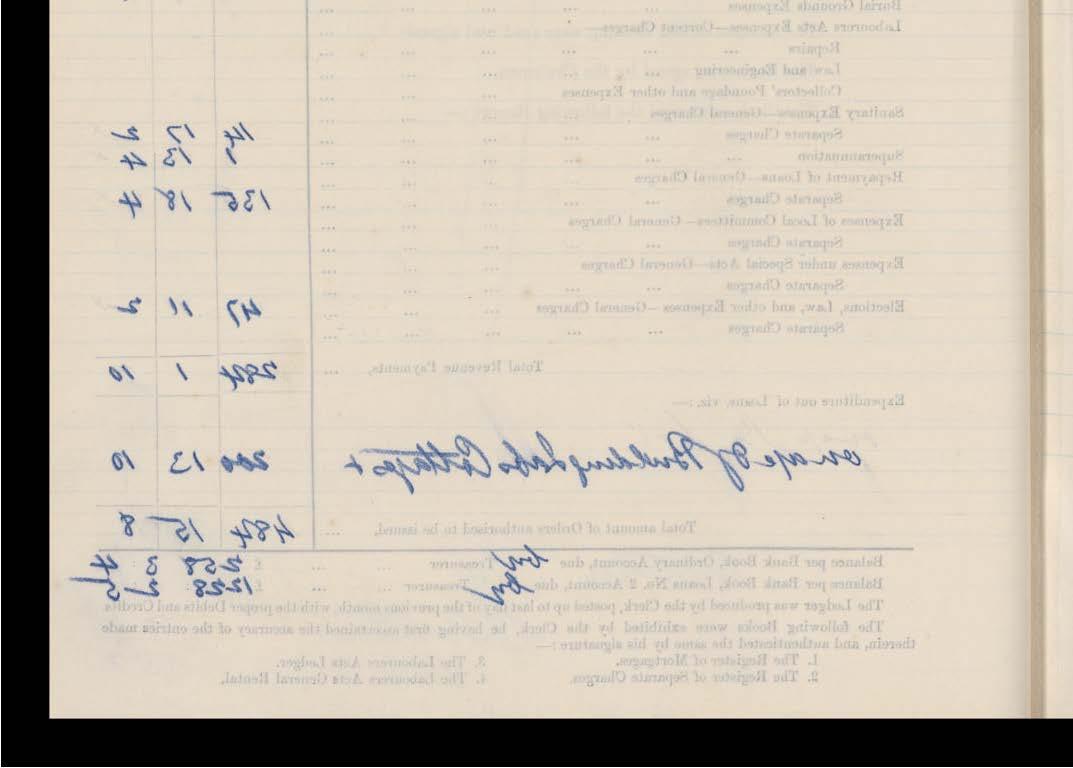 Burial Grounds Expenses ... ... ... ...
Labourers Acts Expenses—Current Charges ... ...
Repairs ... ... ... ... ...
Law and Engineering ... ... ... ... ...
Collectors' Poundage and other Expenses ... ... ...
Sanitary Expenses—General Charges ... ... ... ...
Separate Charges ... ... ... ... ... 14 17 2
Superannuation ... ... ... ... ... 1 13 4
Repayment of Loans—General Charges ... ... ...
Separate Charges ... ... ... ... 135 18 4
Expenses of Local Committees—General Charges ... ... ...
Separate Charges ... ... ... ... ...
Expenses under Special Acts—General Charges ... ... ...
Separate Charges ... ... ... ... ...
Elections, Law, and other Expenses—General Charges ... ... ... 47 11 2
Separate Charges ... ... ... ... ...
Total Revenue Payments, ... 284 1 10
Expenditure out of Loans, viz.:—
on a/c of Building Labs Cottages + 200 13 10
Total amount of Orders authorised to be issued, ... 484 15 8
Balance per Bank Book, Ordinary Account, due by Treasurer ... ... £ 258 3 4
Balance per Bank Book, Loans No. 2 Account, due by Treasurer ... ... £ 1228 2 5
The Ledger was produced by the Clerk, posted up to last day of the previous month, with the proper Debits and Credits
The following Books were exhibited by the Clerk, he having first ascertained the accuracy of the entries made
therein, and authenticated the same by his signature:—
1. The Register of Mortgages. 3. The Labourers Acts Ledger.
2. The Register of Separate Charges. 4. The Labourers Acts General Rental.